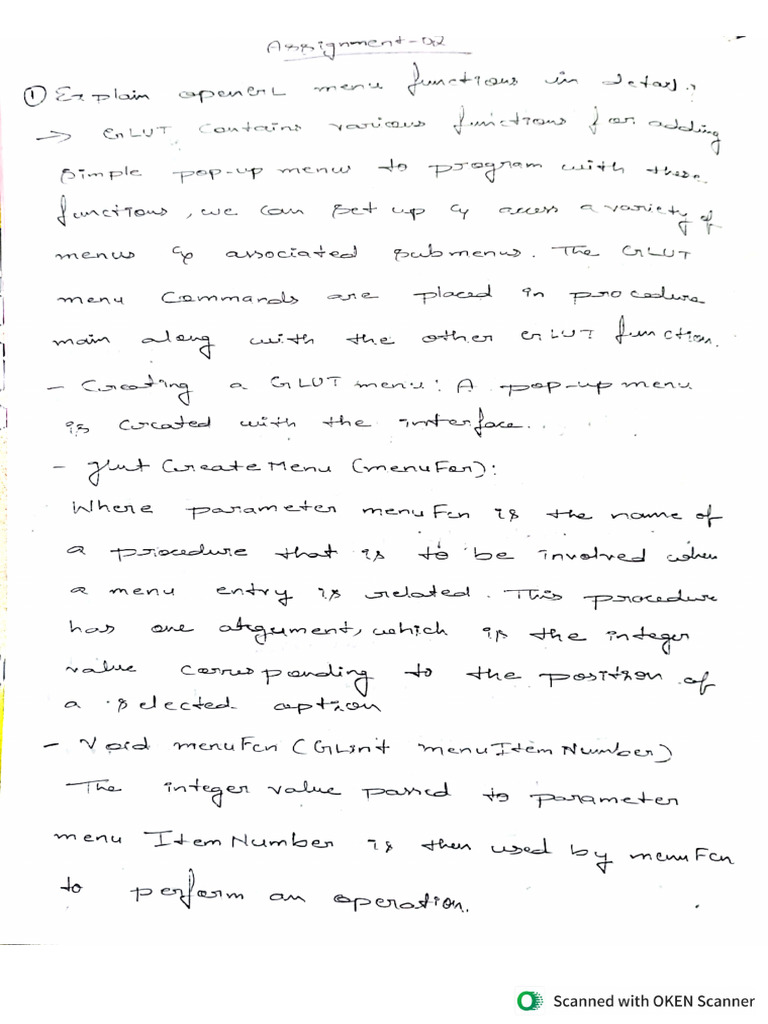 Assignment-02
① Explain openGL menu functions in detail.
→ GLUT contains various functions for adding
simple pop-up menus to program with these
functions, we can set up & access a variety of
menus & associated submenus. The GLUT
menu Commands are placed in procedure
main along with the other GLUT function.
- Creating a GLUT menu: A pop-up menu
is created with the interface.
- glut CreateMenu (menuFcn):
Where parameter menuFcn is the name of
a procedure that is to be involved when
a menu entry is related. This procedure
has one argument, which is the integer
value corresponding to the position of
a selected option
- Void menuFcn (GLint menuItemNumber)
The integer value passed to parameter
menu ItemNumber is then used by menuFcn
to perform an operation.
Scanned with OKEN Scanner